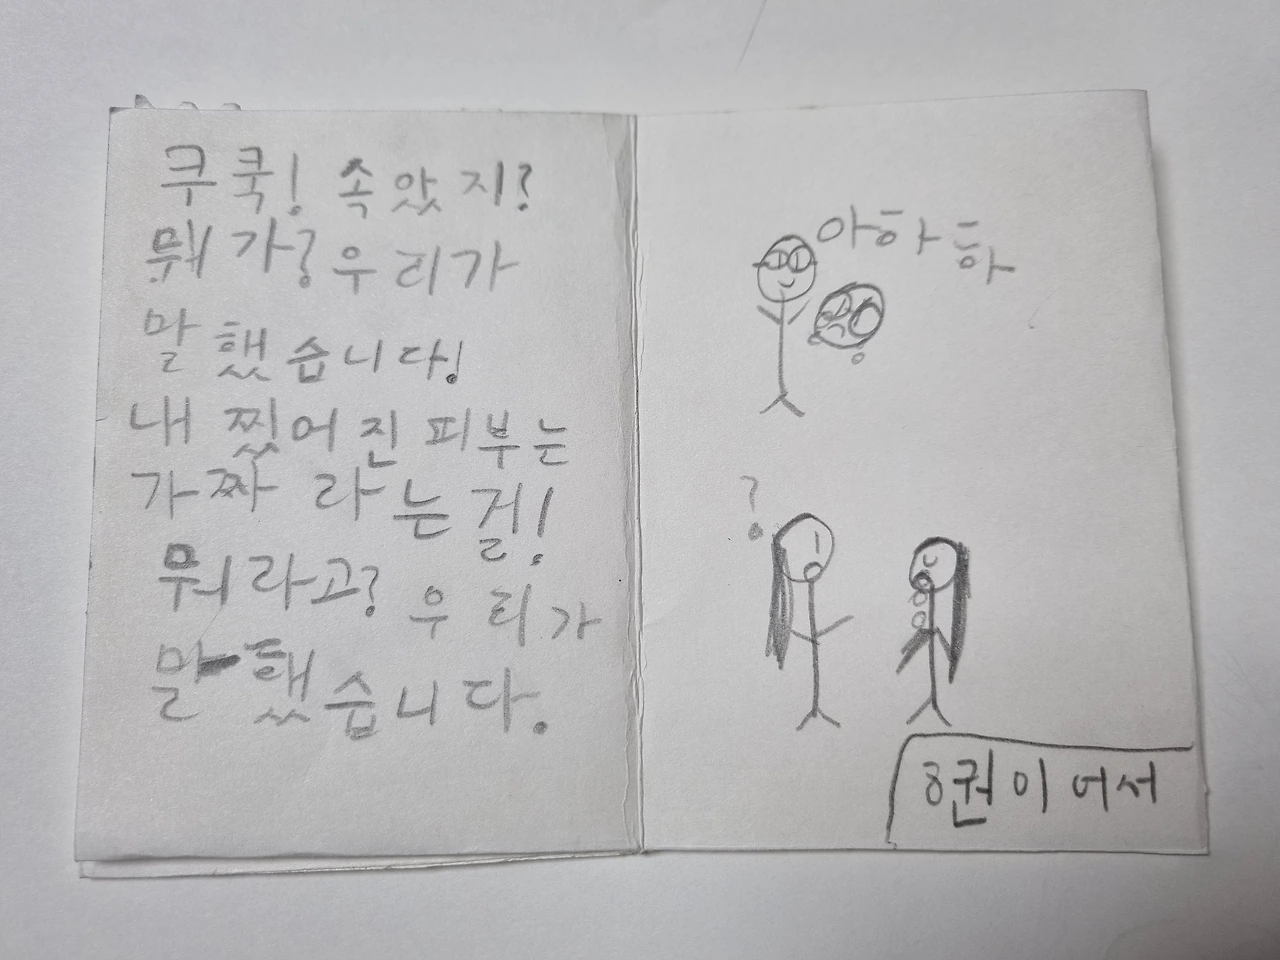 쿠쿡! 속았지?
뭐가? 우리가
말했습니다!
내 찠어진 피부는
가짜라는걸!
뭐라고? 우리가
말했습니다.
아하하
?
8권이어서